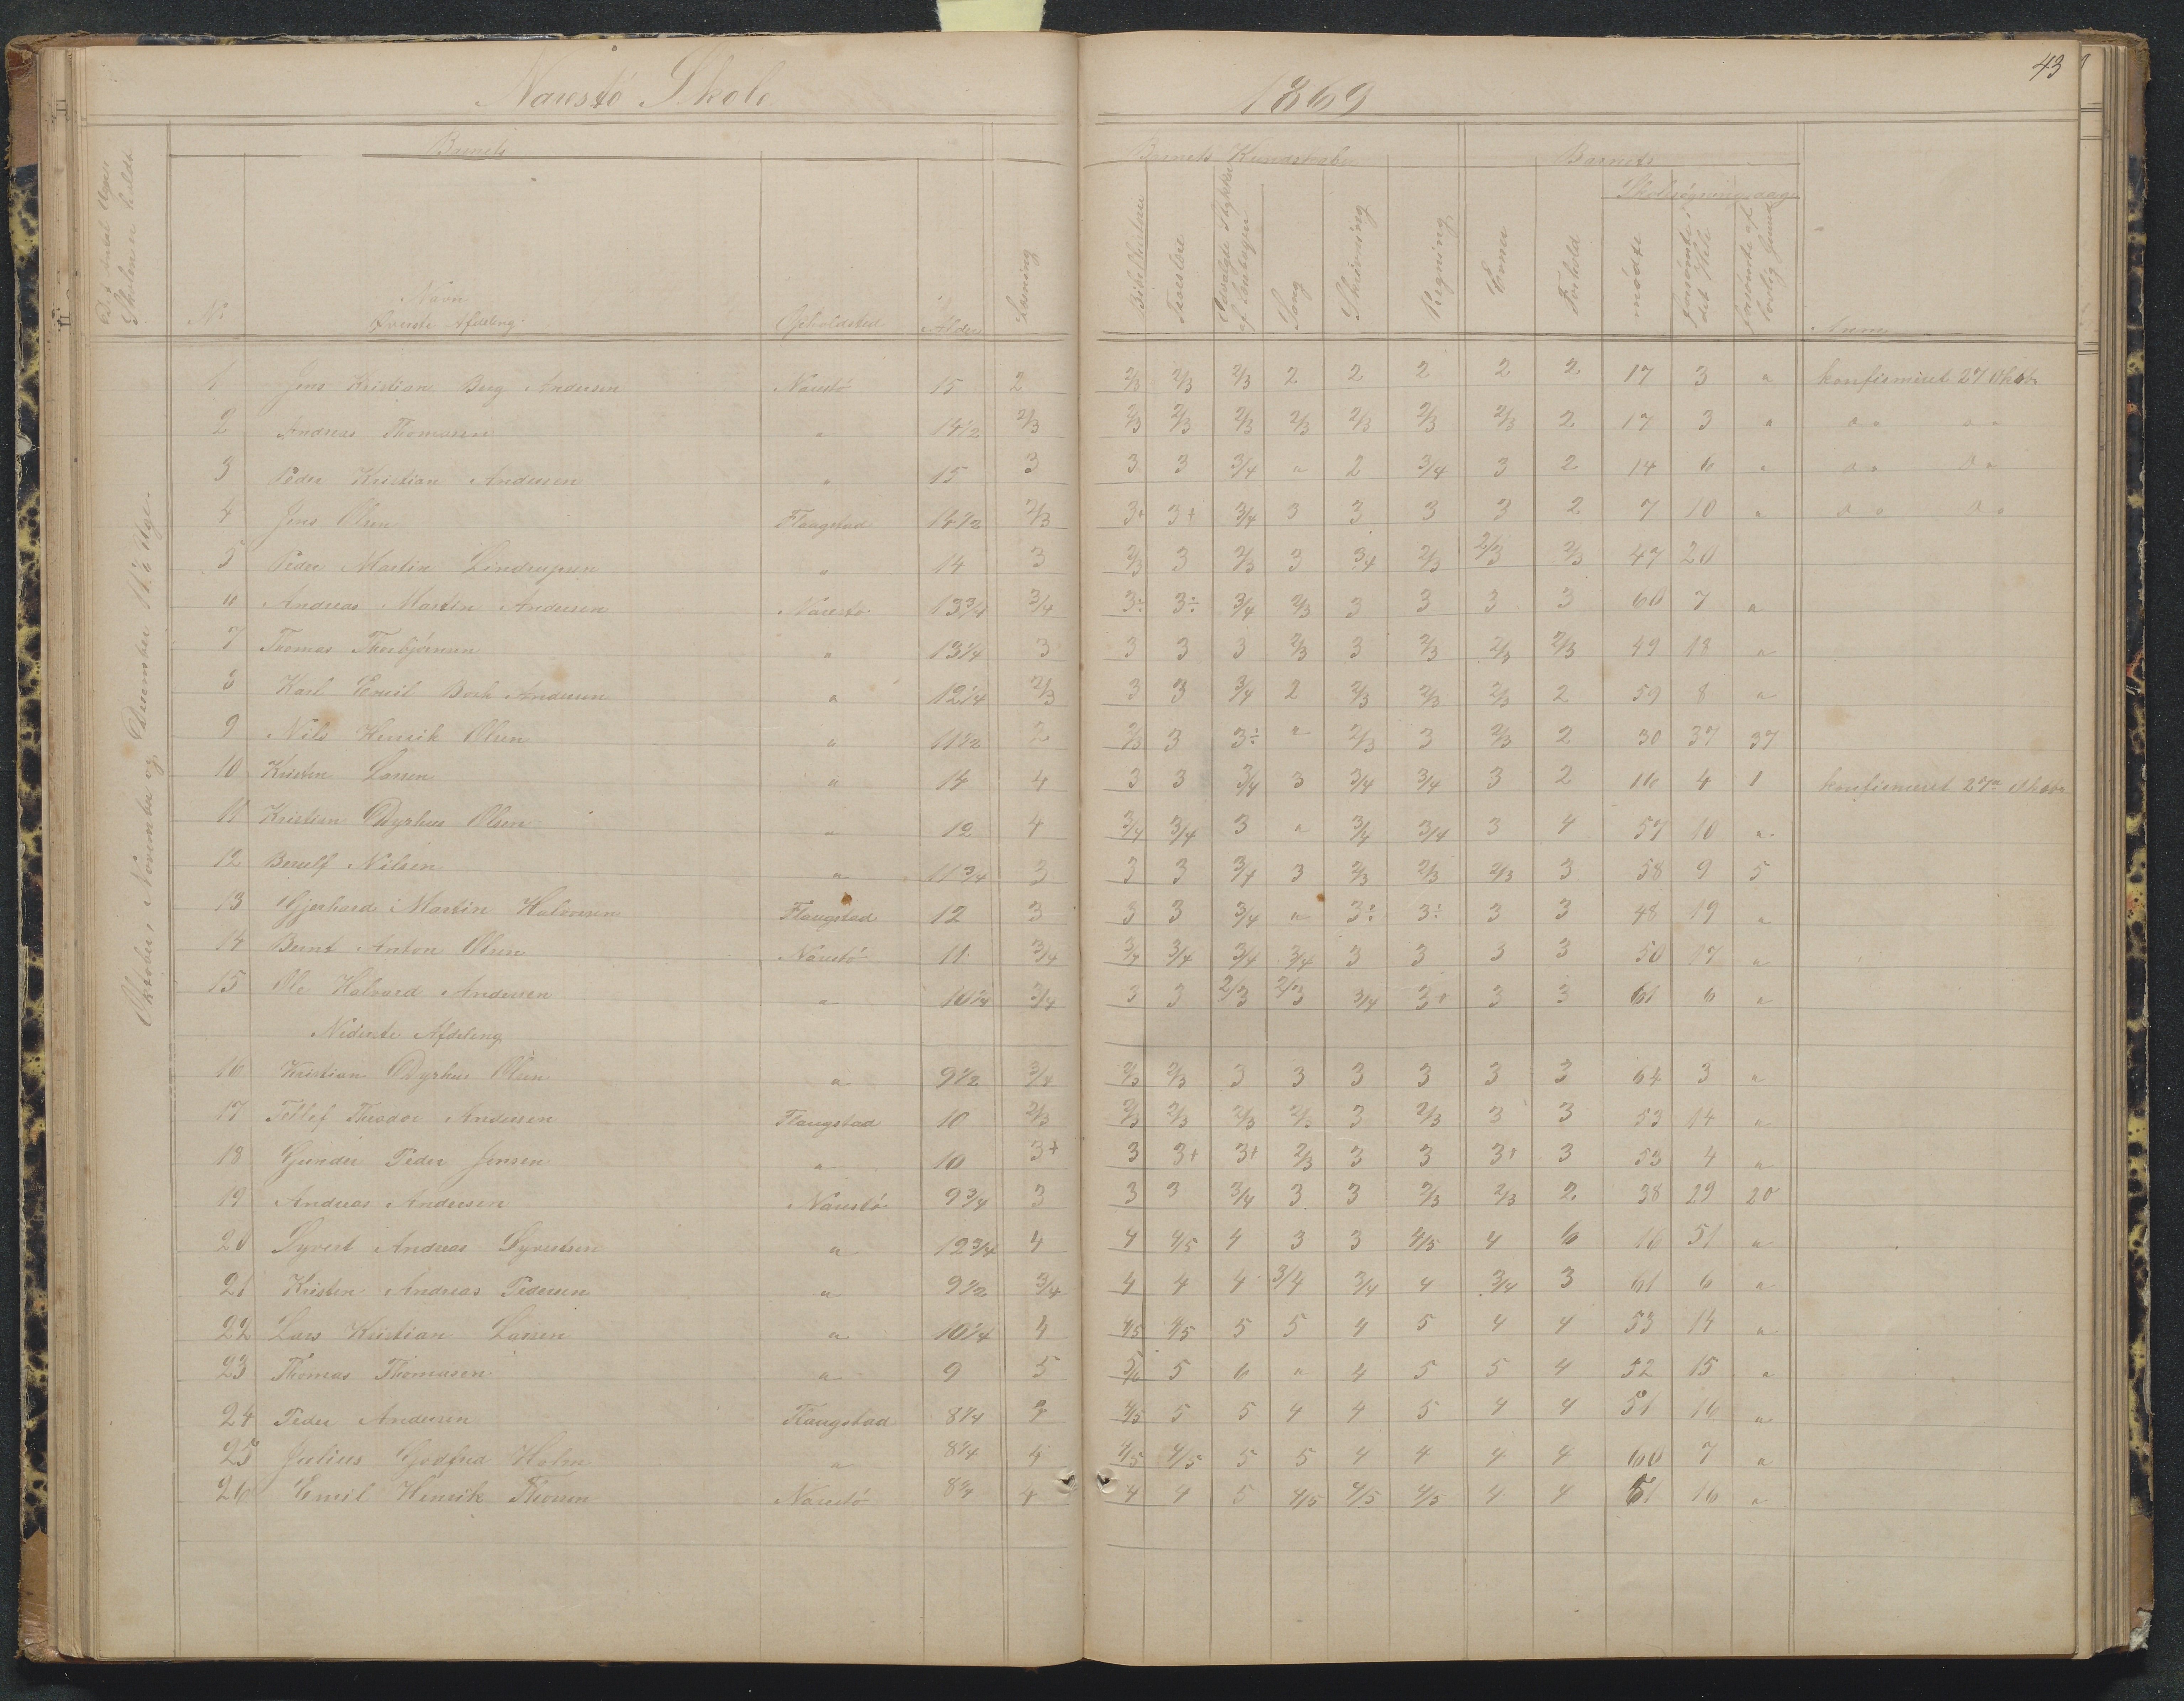 43
Narestö Skole 1869
Det Antal Uger Skolen er holdt
Barnets
Barnets Kundskaber
Barnets
Skolesøgningsdage
No
Navn
Øverste Afdeling
Opholdsted
Alder
Læsning
Bibelhistorie
Troeslære
Udvalgte Stykker af Læsebogen
Sang
Skrivning
Regning
Evner
Forhold
mødte
forsømte i det Hele
forsømte af lovlig Grund
Anm
Oktober, November og December 11½ Uge.
1 Jens Kristian Berg Andersen Narestö 15 2 2/3 2/3 2/3 2 2 2 2 2 17 3 " konfirmeret 27 Oktob
2 Andreas Thomassen " 14½ 2/3 2/3 2/3 2/3 2/3 2/3 2/3 2/3 2 17 3 " Do Do
3 Peder Kristian Andersen " 15 3 3 3 3/4 " 2 3/4 3 2 14 6 " Do Do
4 Jens Olsen Flangstad 14½ 2/3 3+ 3+ 3/4 3 3 3 3 2 7 10 " Do Do
5 Peder Martin Lindrupsen " 14 3 2/3 3 2/3 3 3/4 2/3 2/3 2/3 47 20
6 Andreas Martin Andersen Narestö 13¾ 3/4 3÷ 3÷ 3/4 2/3 3 3 3 3 60 7 "
7 Thomas Thorbjörnsen " 13¼ 3 3 3 3 2/3 3 2/3 2/3 2/3 49 18 "
8 Karl Emil Berh Andersen " 12¼ 2/3 3 3 3/4 2 2/3 2/3 2/3 2 59 8 "
9 Nils Henrik Olsen " 11½ 2 2/3 3 3÷ " 2/3 3 2/3 2 30 37 37
10 Kristen Larsen " 14 4 3 3 3/4 3 3/4 3/4 3 2 16 4 1 konfirmeret 27de Oktobr
11 Kristian Dyrhus Olsen " 12 4 3/4 3/4 3 " 3/4 3/4 3 4 57 10 "
12 Berulf Nilsen " 11¾ 3 3 3 3/4 3 2/3 2/3 2/3 3 58 9 5
13 Gjerhard Martin Halvorsen Flangstad 12 3 3 3 3/4 " 3÷ 3÷ 3 3 48 19 "
14 Bernt Anton Olsen Narestö 11 3/4 3/4 3/4 3/4 3/4 3 3 3 3 50 17 "
15 Ole Halvard Andersen " 10¼ 3/4 3 3 2/3 2/3 3/4 3+ 3 3 61 6 "
Nederste Afdeling
16 Kristian Dyrhus Olsen " 9½ 3/4 2/3 2/3 3 3 3 3 3 3 64 3 "
17 Tellef Theodor Andersen Flangstad 10 2/3 2/3 2/3 2/3 2/3 3 2/3 3 3 53 14 "
18 Gunder Peder Jensen " 10 3+ 3 3+ 3+ 2/3 3 3 3+ 3 53 4 "
19 Andreas Andersen Narestö 9¾ 3 3 3 3/4 3 3 2/3 2/3 2 38 29 20
20 Syvert Andreas Syvertsen " 12¾ 4 4 4/5 4 3 3 4/5 4 6 16 51 "
21 Kristen Andreas Pedersen " 9½ 3/4 4 4 4 3/4 3/4 4 3/4 3 61 6 "
22 Lars Kristian Larsen " 10¼ 4 4/5 4/5 5 5 4 5 4 4 53 14 "
23 Thomas Thomassen " 9 5 5/6 5 6 " 4 5 5 4 52 15 "
24 Peder Andersen Flangstad 8¼ 4 4/5 5 5 4 4 5 4 4 51 16 "
25 Julius Godfred Holm " 8¼ 4 4/5 4/5 5 5 4 4 4 4 60 7 "
26 Emil Henrik Thorsen Narestö 8¼ 4 4 4 5 4/5 4/5 4/5 4 4 51 16 "